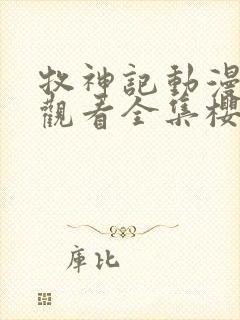 牧神記動漫
觀看全集櫻
庫比